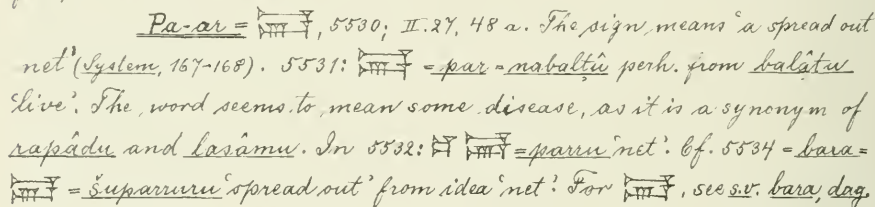 Pa-ar = , 5530; II. 27, 48 a. The sign means 'a spread out
net' (System, 167-168). 5531: = par = nabalṭû perh. from balâṭu
'live'. The word seems to mean some disease, as it is a synonym of
rapâdu and lasâmu. In 5532: = parru 'net'. Cf. 5534 = bara =
 = šuparruru 'spread out' from idea 'net'. For , see s.v. bara, dag.